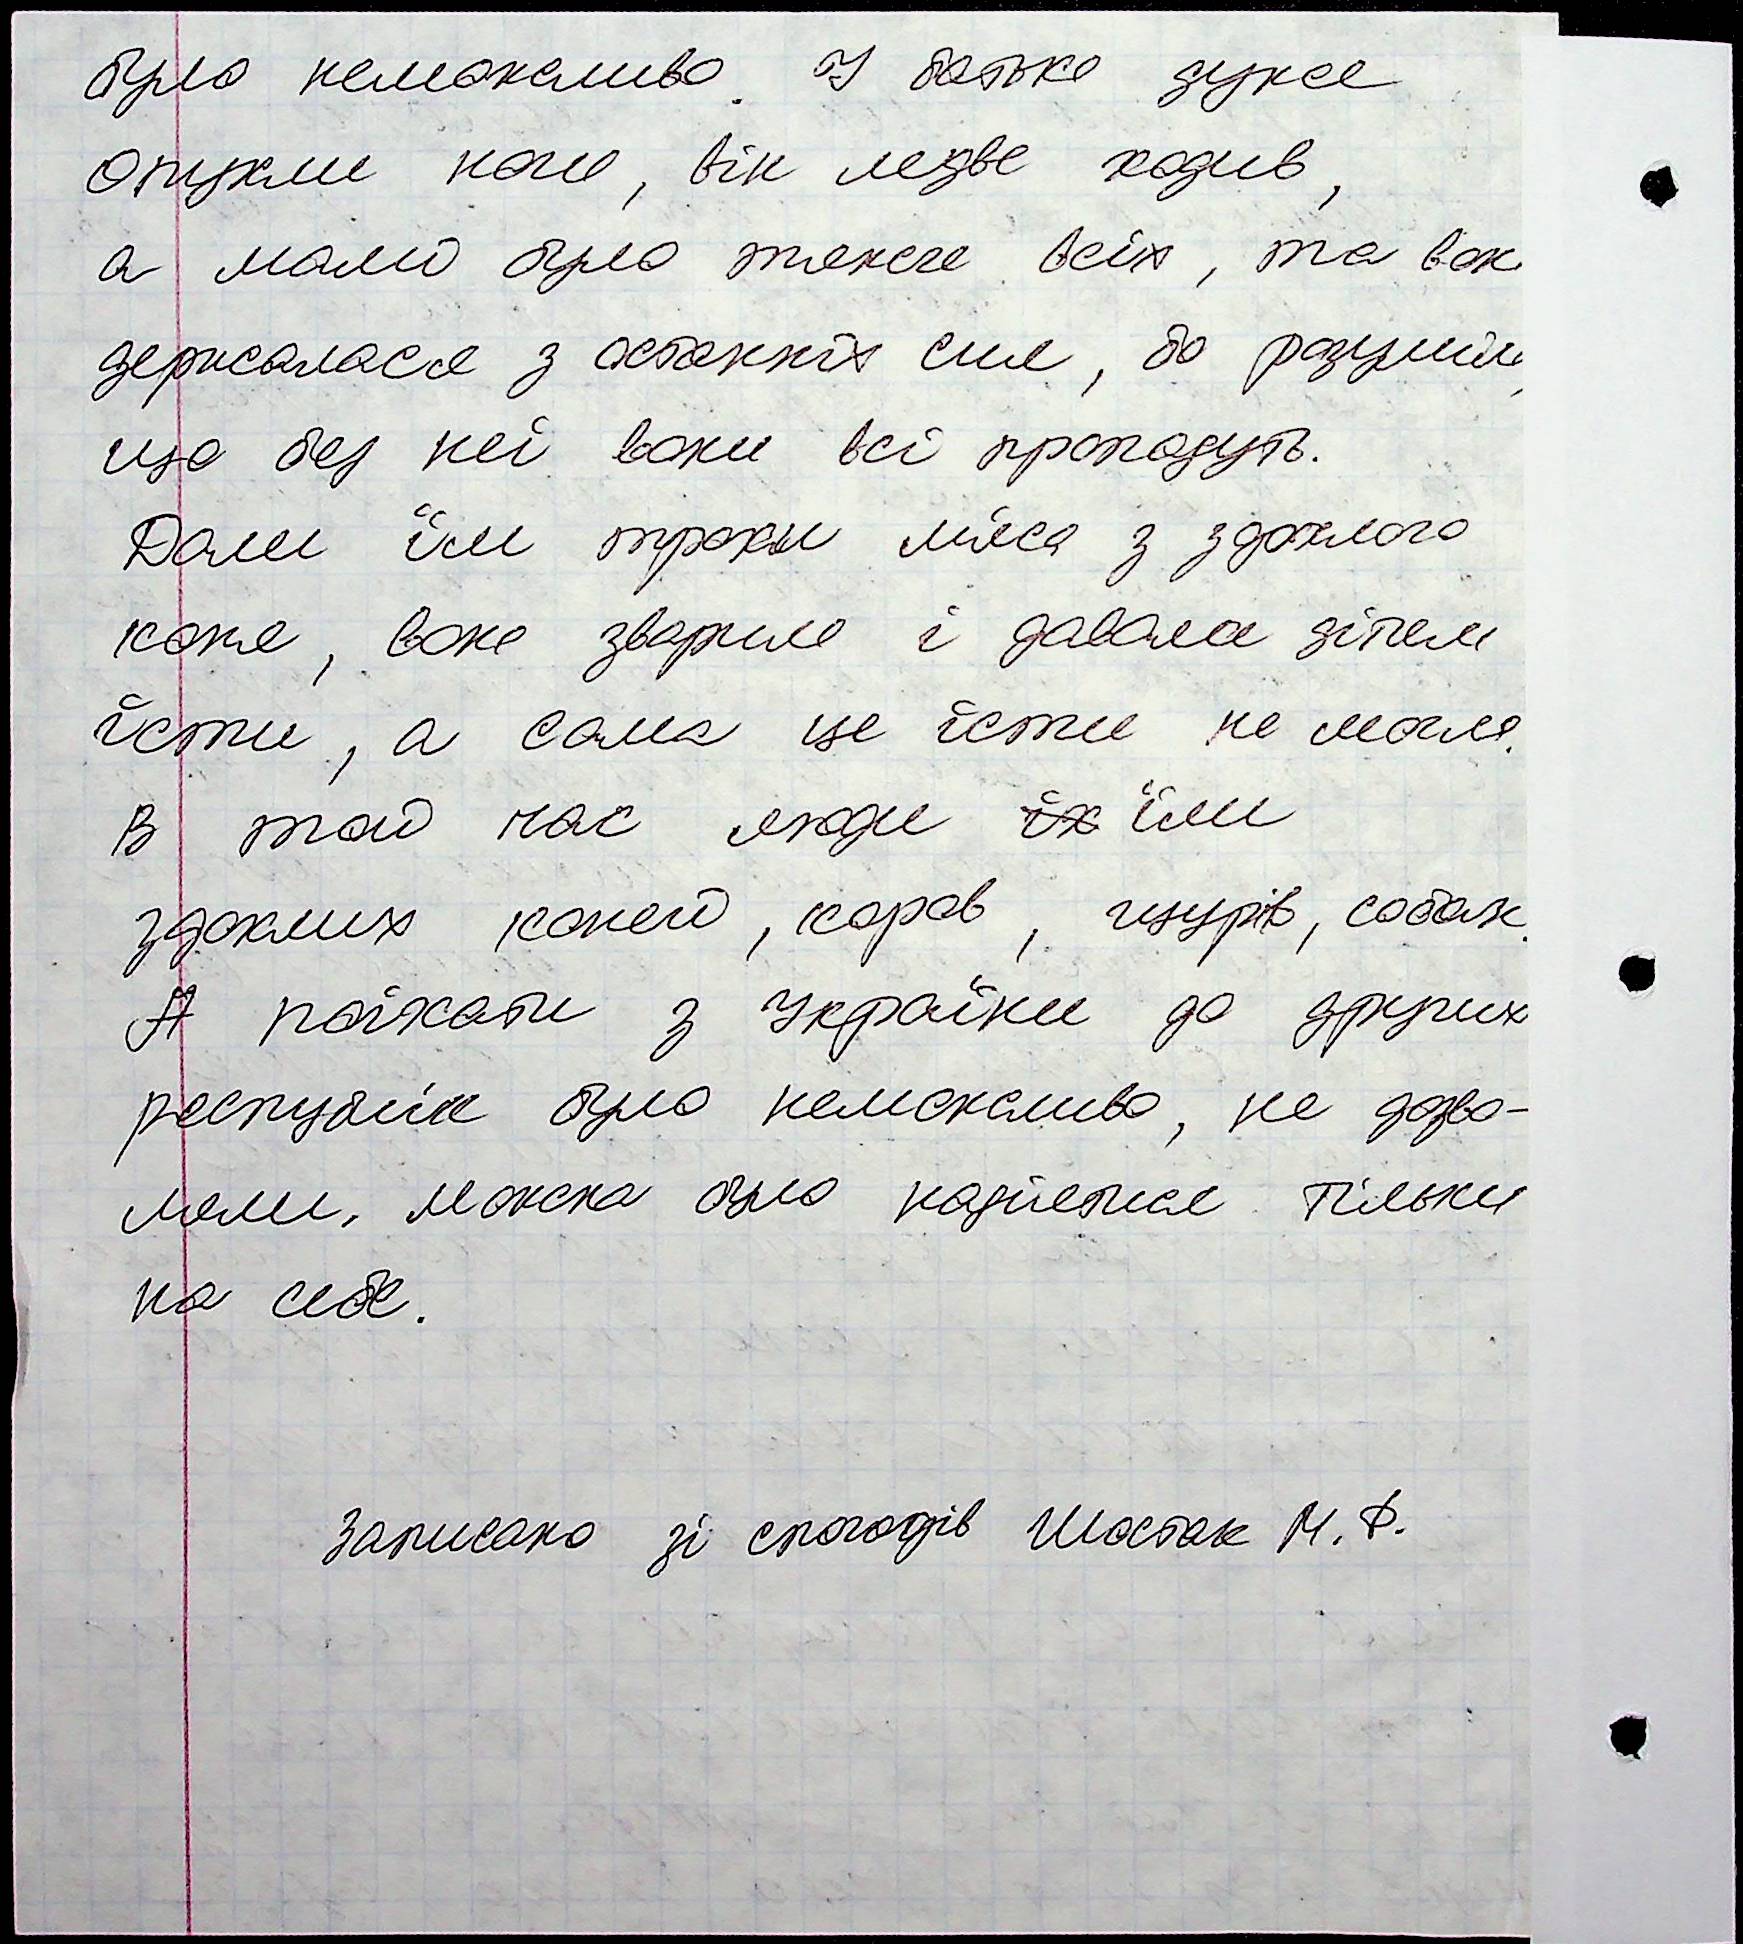 було неможливо. У батька дуже
опухли ноги, він ледве ходив,
а мамі було тяжче всіх, та вон
держалася з останніх сил, бо розуміл,
що без неї вони всі пропадуть.
Дали їм трохи м'яса з здохлого
коня, вона зварила і давала дітям
їсти, а сама це їсти не могла.
В той час люди їх їли
здохлих коней, коров, щурів, собак.
А поїхати з України до других
республік було неможливо, не дозво-
ляли, можна було надіятися тільки
на себе.
Записано зі спогадів Шостак М. Ф.